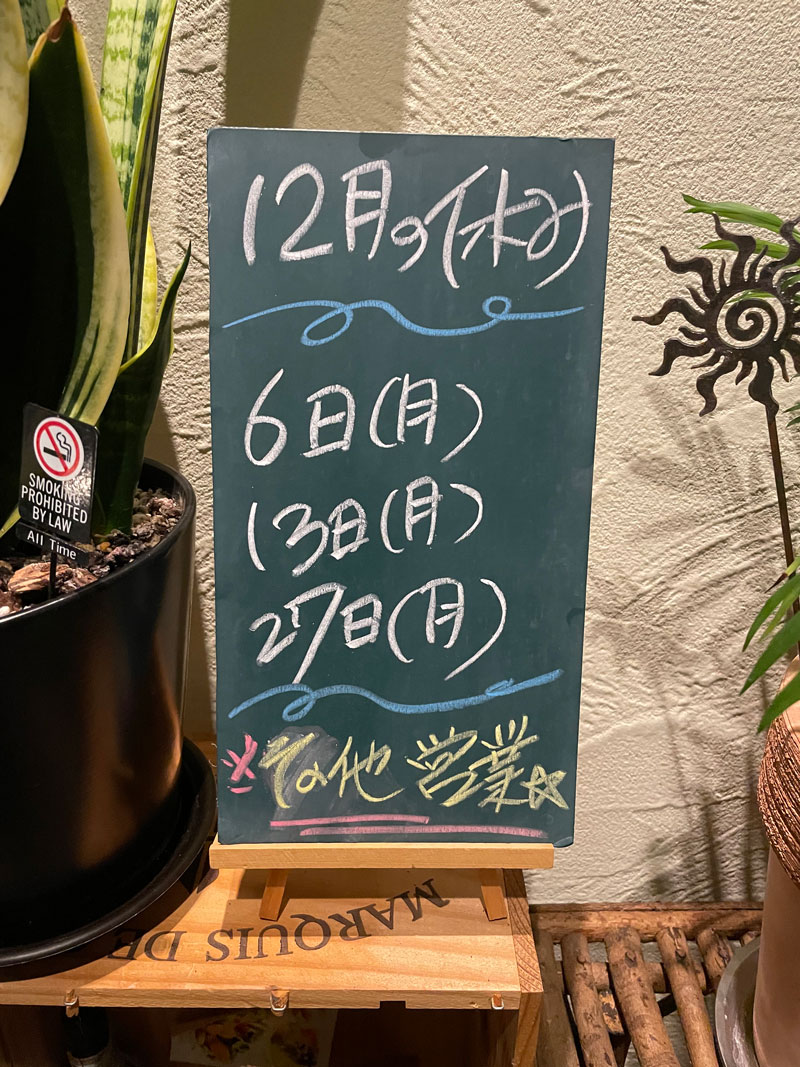 12月の休み
6日(月)
13日(月)
27日(月)
※その他 営業☆
SMOKING
PROHIBITED
BY LAW
All Time
MARQUIS DE